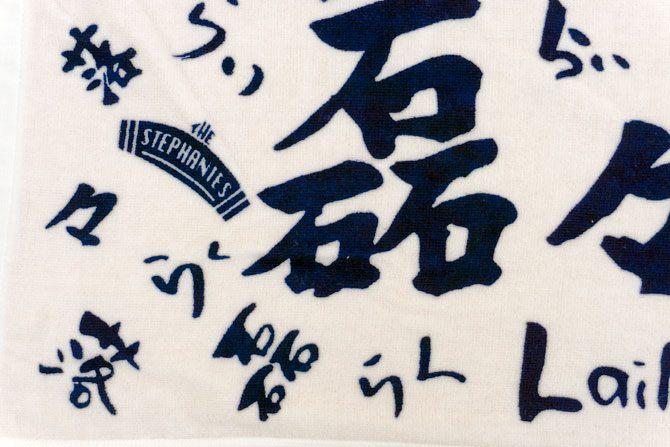 らい
磊
らい
落
THE
STEPHANIES
々
々
らく
落
磊
らく
Lai